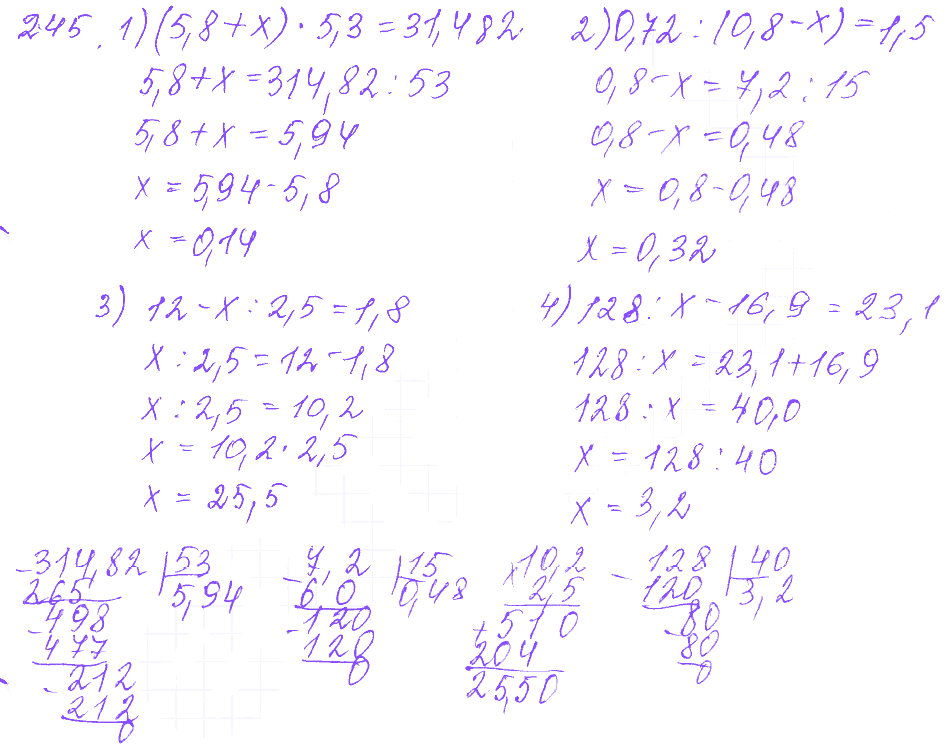 245. 1) (5,8 + x) · 5,3 = 31,482
5,8 + x = 314,82 : 53
5,8 + x = 5,94
x = 5,94 - 5,8
x = 0,14
2) 0,72 : (0,8 - x) = 1,5
0,8 - x = 7,2 : 15
0,8 - x = 0,48
x = 0,8 - 0,48
x = 0,32
3) 12 - x : 2,5 = 1,8
x : 2,5 = 12 - 1,8
x : 2,5 = 10,2
x = 10,2 · 2,5
x = 25,5
4) 128 : x - 16,9 = 23,1
128 : x = 23,1 + 16,9
128 : x = 40,0
x = 128 : 40
x = 3,2
- 314,82 | 53
265 5,94
- 498
477
- 212
212
0
- 7,2 | 15
6 0 0,48
- 120
120
0
x 10,2
2,5
+ 510
204
25,50
- 128 | 40
120 3,2
- 80
80
0